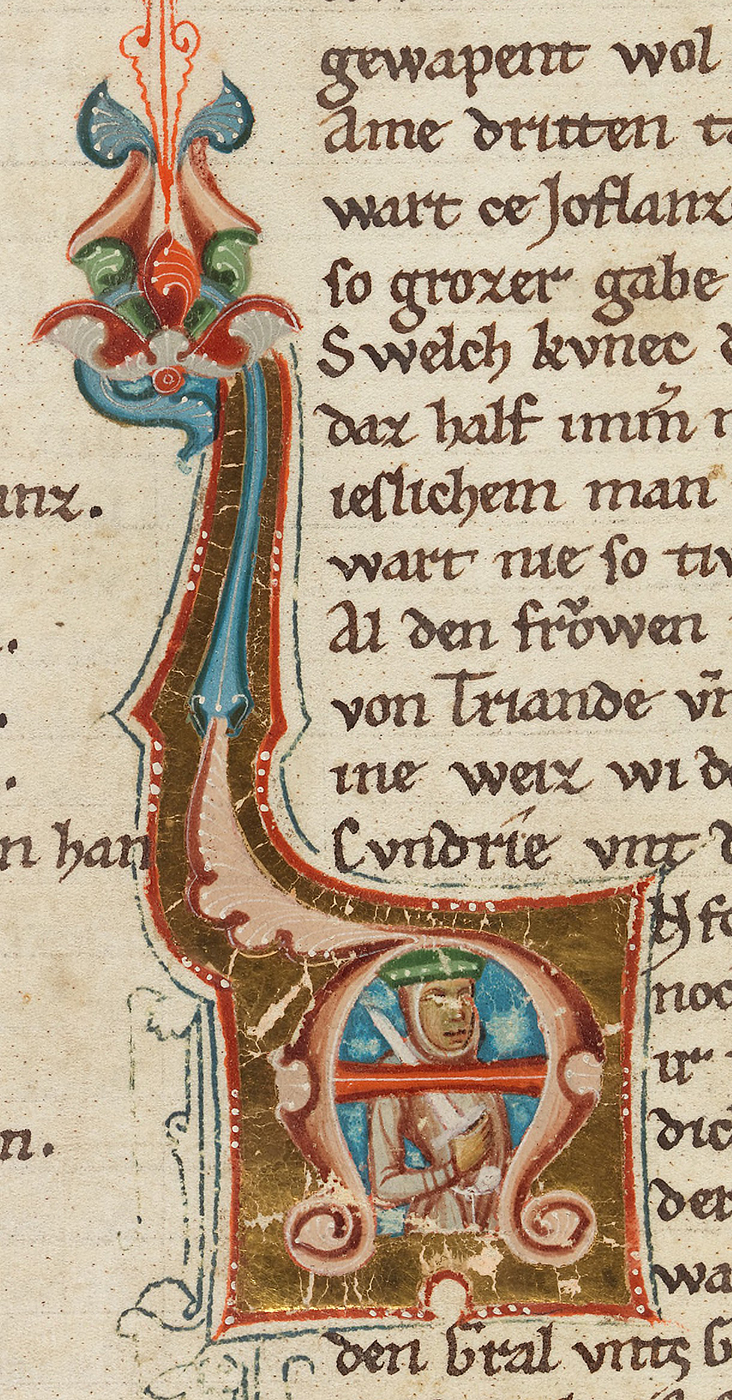 gewapent wol
Ame dritten
wart ce Joflanz
so grozer gabe
Swelch kvnec
daz half imm̄
ieslichem man
wart nie so
Al den frowen
von Triande vn̄
ine weiz wi
Cvndrie vnt
noc
ur
der
wa
den Gral vnts
unz.
n han
n.